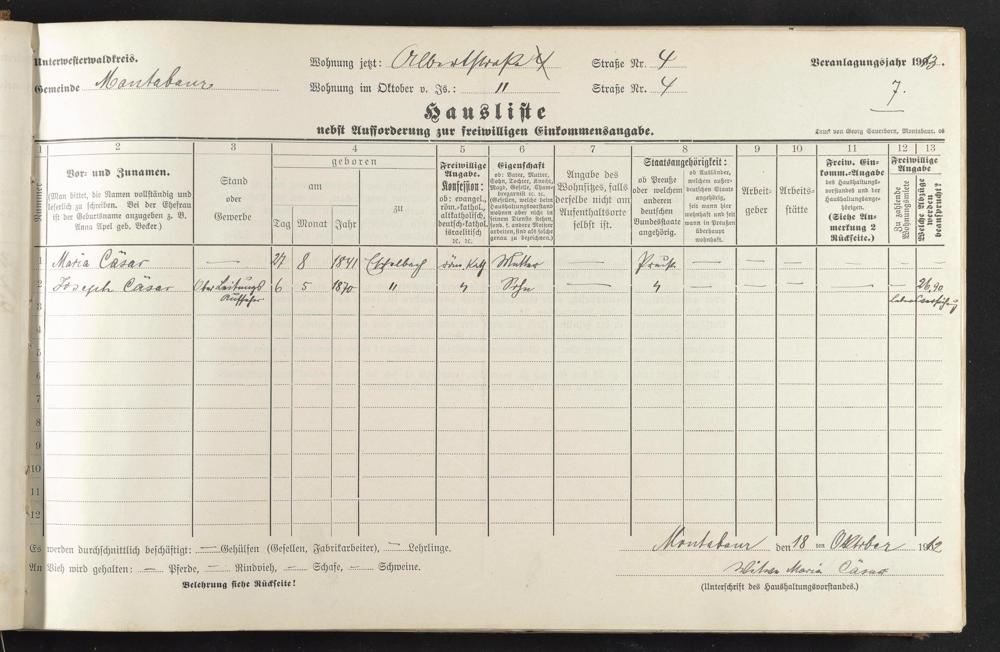 Unterwesterwaldkreis.
Wohnung jetzt: Albertstraße 4 Straße Nr. 4
Veranlagungsjahr 1913.
Gemeinde Montabaur
Wohnung im Oktober v. Js.: " Straße Nr. 4
7.
Hausliste
nebst Aufforderung zur freiwilligen Einkommensangabe.
Druck von Georg Sauerborn, Montabaur.
1 2 3 4 5 6 7 8 9 10 11 12 13
Nummer
Vor- und Zunamen.
(Man bittet, die Namen vollständig und
leserlich zu schreiben. Bei der Ehefrau
ist der Geburtsname anzugeben z. B.
Anna Apel geb. Becker.)
Stand
oder
Gewerbe
geboren
am
Tag Monat Jahr
zu
Freiwillige
Angabe.
Konfession:
ob: evangel.,
röm.-kathol.,
altkatholisch,
deutsch-kathol.
israelitisch
ɾc. ɾc.
Eigenschaft
ob: Vater, Mutter,
Sohn, Tochter, Knecht,
Magd, Geselle, Cham-
bregarnist ɾc. ɾc.
(Gesellen, welche beim
Haushaltungsvorstand
wohnen aber nicht in
seinen Diensten stehen,
sond. f. andere Meister
arbeiten, sind als solche
genau zu bezeichnen.)
Angabe des
Wohnsitzes, falls
derselbe nicht am
Aufenthaltsorte
selbst ist.
Staatsangehörigkeit:
ob Preuße
oder welchem
anderen
deutschen
Bundesstaate
angehörig.
ob Ausländer,
welchem außer-
deutschen Staate
angehörig,
seit wann hier
wohnhaft und seit
wann in Preußen
überhaupt
wohnhaft.
Arbeit-
geber
Arbeits-
stätte
Freiw. Ein-
komm.-Angabe
des Haushaltungs-
vorstandes und der
Haushaltungsange-
hörigen.
(Siehe An-
merkung 2
Rückseite.)
Freiwillige
Angabe
Zu zahlende
Wohnungsmiete
Welche Abzüge
werden
beansprucht?
1 Maria Cäsar — 27 8 1841 Eschelbach röm. Kath Mutter — Preuß. — — — — —
2 Joseph Cäsar Ober Leitungs 6 5 1870 " " Sohn — " — — — — — 26,90
Aufseher
3
4
5
6
7
8
9
10
11
12
Es werden durchschnittlich beschäftigt: — Gehülfen (Gesellen, Fabrikarbeiter), — Lehrlinge.
Montabaur den 18 ten Oktober 1912
An Vieh wird gehalten: — Pferde, — Rindvieh, — Schafe, — Schweine.
Witwe Maria Cäsar
Belehrung siehe Rückseite!
(Unterschrift des Haushaltungsvorstandes.)